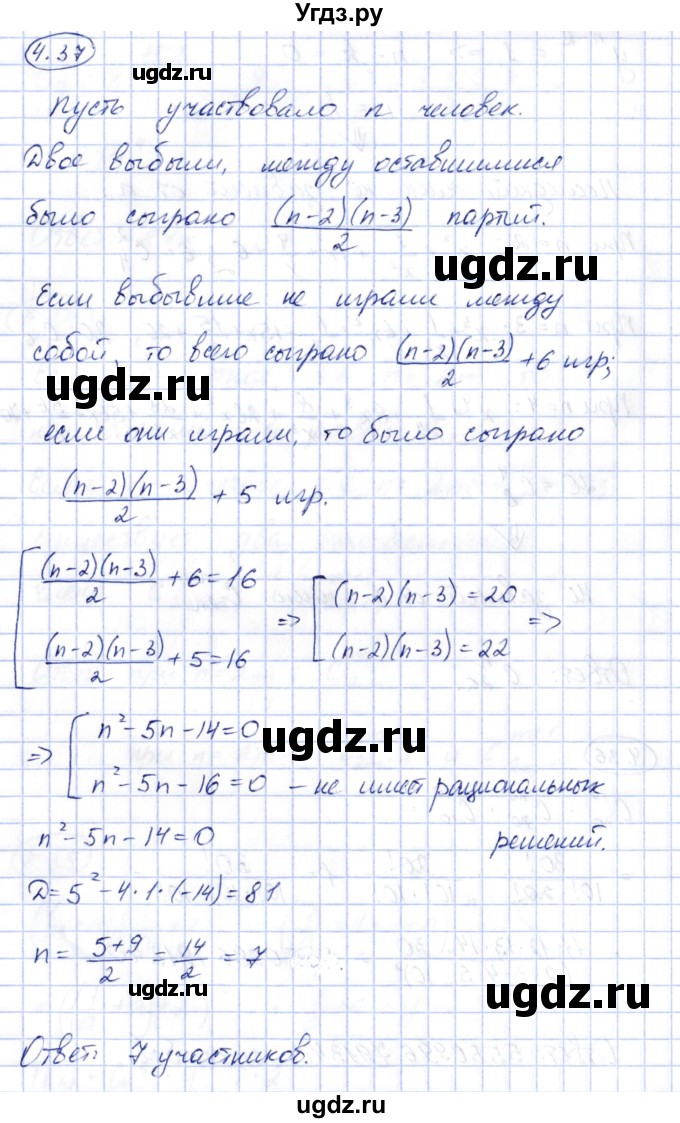 Угдз.ру
4.37
ugdz.ru
Пусть участвовало n человек.
Двое выбыли, между оставшимися
было сыграно (n-2)(n-3)/2 партий.
ugdz.ru
Если выбывшие не играли между
собой, то всего сыграно (n-2)(n-3)/2 + 6 игр;
ugdz.ru
если они играли, то было сыграно
(n-2)(n-3)/2 + 5 игр.
ugdz.ru
[ (n-2)(n-3)/2 + 6 = 16 => [ (n-2)(n-3) = 20 =>
(n-2)(n-3)/2 + 5 = 16 (n-2)(n-3) = 22
ugdz.ru
=> [ n² - 5n - 14 = 0
n² - 5n - 16 = 0 – не имеет рациональных
решений.
n² - 5n - 14 = 0
D = 5² - 4·1·(-14) = 81
n = (5+9)/2 = 14/2 = 7
ugdz.ru
ugdz.ru
Ответ: 7 участников.
ugdz.ru